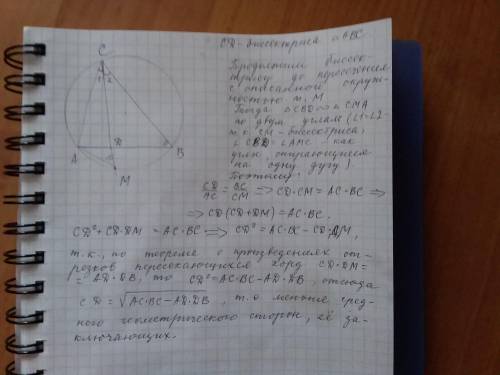 CD - биссектриса △ABC
Продолжим биссек-
трису до пересечения
с описанной окруж-
ностью т. M
Тогда △CBD ∾ △CMA
по двум углам (∠1=∠2
т.к. CM - биссектриса,
∠CBD = ∠AMC - как
углы, опирающиеся
на одну дугу).
Поэтому:
CD/AC = BC/CM => CD·CM = AC·BC =>
=> CD(CD+DM) = AC·BC.
CD²+CD·DM = AC·BC => CD² = AC·BC - CD·DM,
т.к., по теореме о произведениях от-
резков пересекающихся хорд CD·DM=
= AD·DB, то CD²=AC·BC-AD·DB, отсюда
CD = √AC·BC-AD·DB, т.о меньше сред-
него геометрического сторон, её за-
ключающих.
C
1 2
A
D
B
M